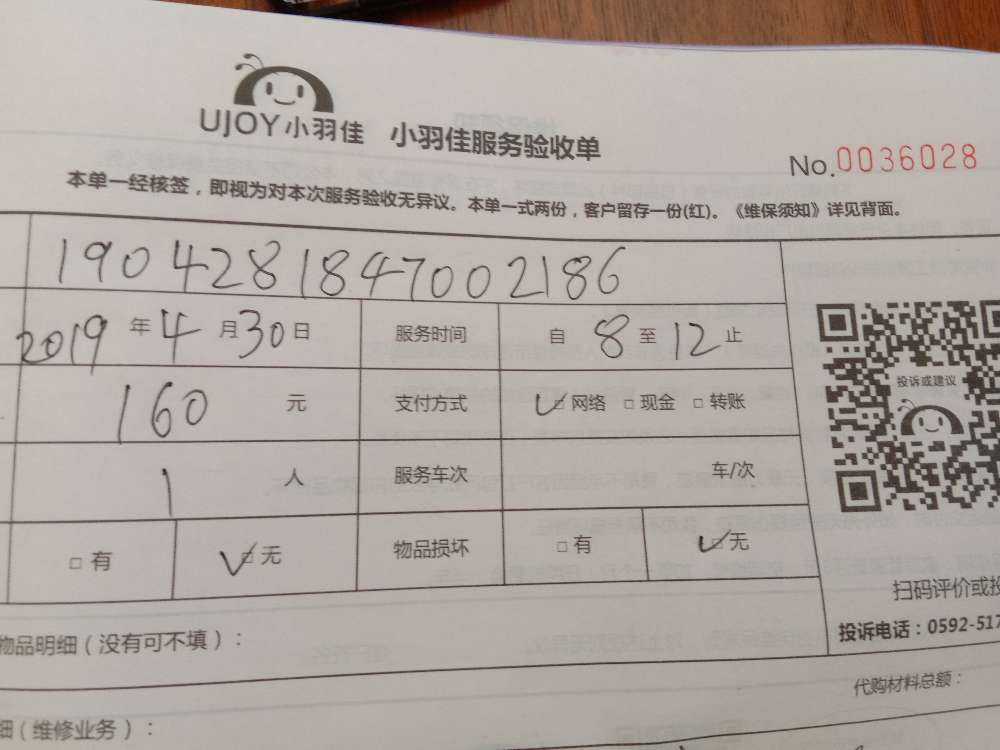 UJOY小羽佳 小羽佳服务验收单
No.0036028
本单一经核签，即视为对本次服务验收无异议。本单一式两份，客户留存一份(红)。《维保须知》详见背面。
1904281847002186
2019年4月30日 服务时间 自8至12止
160元 支付方式 ✓□网络 □现金 □转账
投诉或建议
1人 服务车次 车/次
□有 ✓□无 物品损坏 □有 ✓□无
扫码评价或投
投诉电话：0592-517
物品明细（没有可不填）：
代购材料总额：
细（维修业务）：